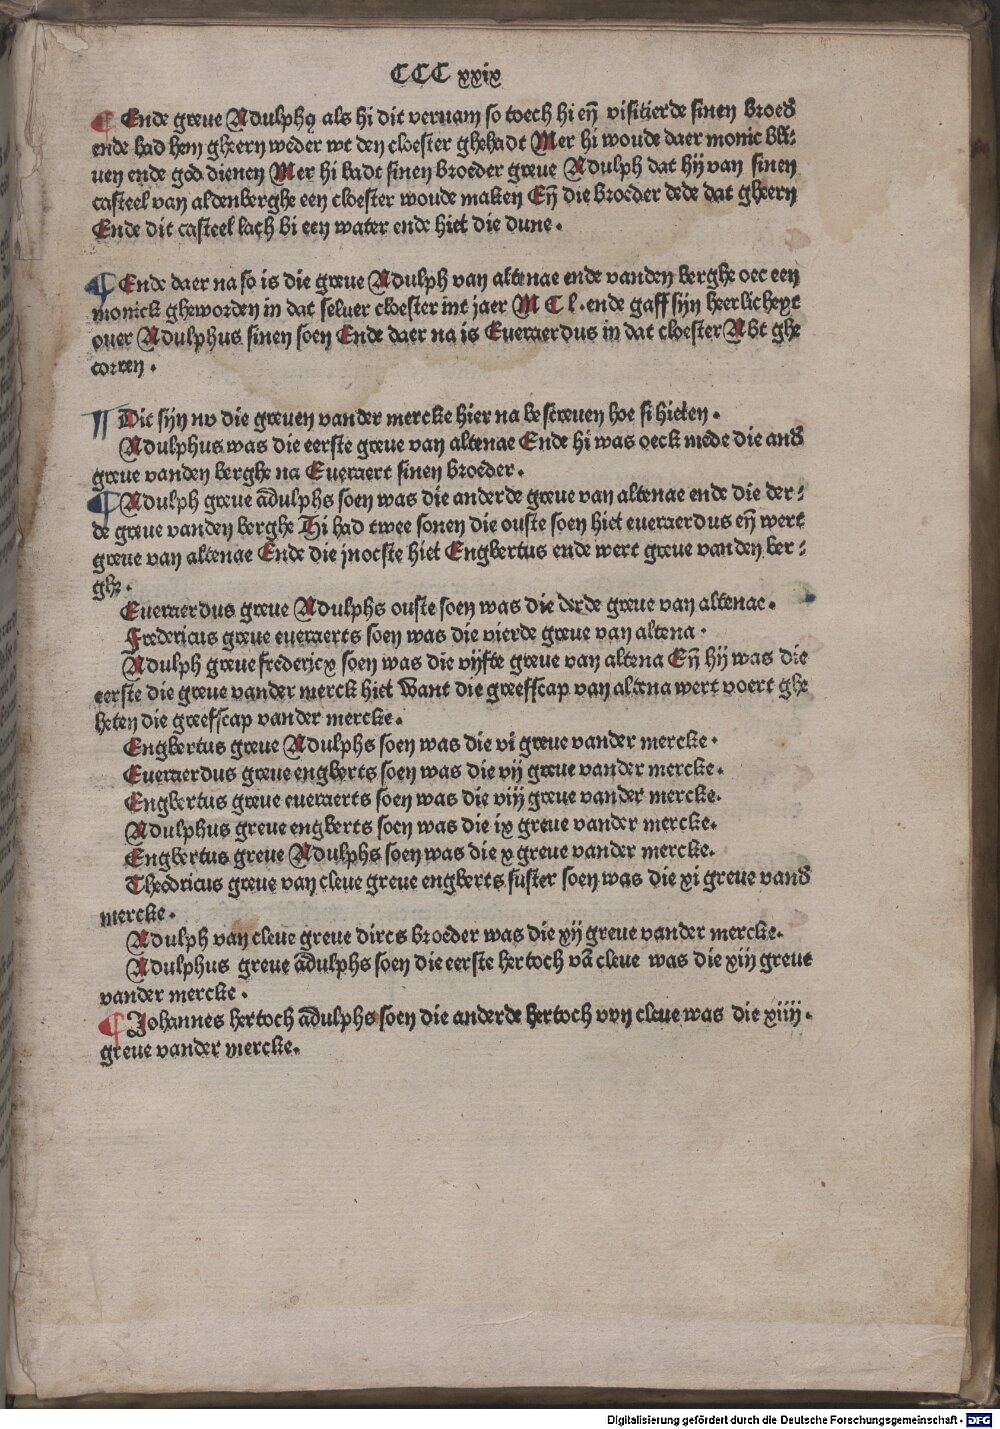 CCC xxix
¶ Ende greue Adulphꝯ als hi dit vernam so toech hi eñ visitierde sinen broed̕
ende bad hem gheern weder wt den cloester ghehadt Mer hi woude daer monic bli⸗
uen ende god dienen Mer hi badt sinen broeder greue Adulph dat hij van sinen
casteel van aldenberghe een cloester woude maken Eñ die broeder dede dat gheern
Ende dit casteel lach bi een water ende hiet die dune.
¶ Ende daer na so is die greue Adulph van altenae ende vanden berghe oec een
monick gheworden in dat seluer cloester int jaer M C l. ende gaff sijn heerlicheyt
ouer Adulphus sinen soen Ende daer na is Eueraerdus in dat cloester Abt ghe
coren.
¶ Dit sijn nv die greuen vander mercke hier na bescreuen hoe si hieten.
Adulphus was die eerste greue van altenae Ende hi was oeck mede die and̕
greue vanden berghe na Eueraert sinen broeder.
¶ Adulph greue adulphs soen was die anderde greue van altenae ende die der⸗
de greue vanden berghe Hi had twee sonen die ouste soen hiet eueraerdus eñ wert
greue van altenae Ende die jnocste hiet Engbertus ende wert greue vanden ber⸗
ghe.
Eueraerdus greue Adulphs ouste soen was die derde greue van altenae.
Fredericus greue eueraerts soen was die vierde greue van altena.
Adulph greue fredericx soen was die vijfte greue van altena Eñ hij was die
eerste die greue vander merck hiet Want die greefscap van altena wert voert ghe
heten die greefscap vander mercke.
Engbertus greue Adulphs soen was die vi greue vander mercke.
Eueraerdus greue engberts soen was die vij greue vander mercke.
Engbertus greue eueraerts soen was die viij greue vander mercke.
Adulphus greue engberts soen was die ix greue vander mercke.
Engbertus greue Adulphs soen was die x greue vander mercke.
Theodricus greue van cleue greue engberts suster soen was die xi greue vand̕
mercke.
Adulph van cleue greue dircs broeder was die xij greue vander mercke.
Adulphus greue adulphs soen die eerste hertoch vā cleue was die xiij greue
vander mercke.
¶ Johannes hertoch adulphs soen die anderde hertoch vvn cleue was die xiiij.
greue vander mercke.
Digitalisierung gefördert durch die Deutsche Forschungsgemeinschaft - DFG